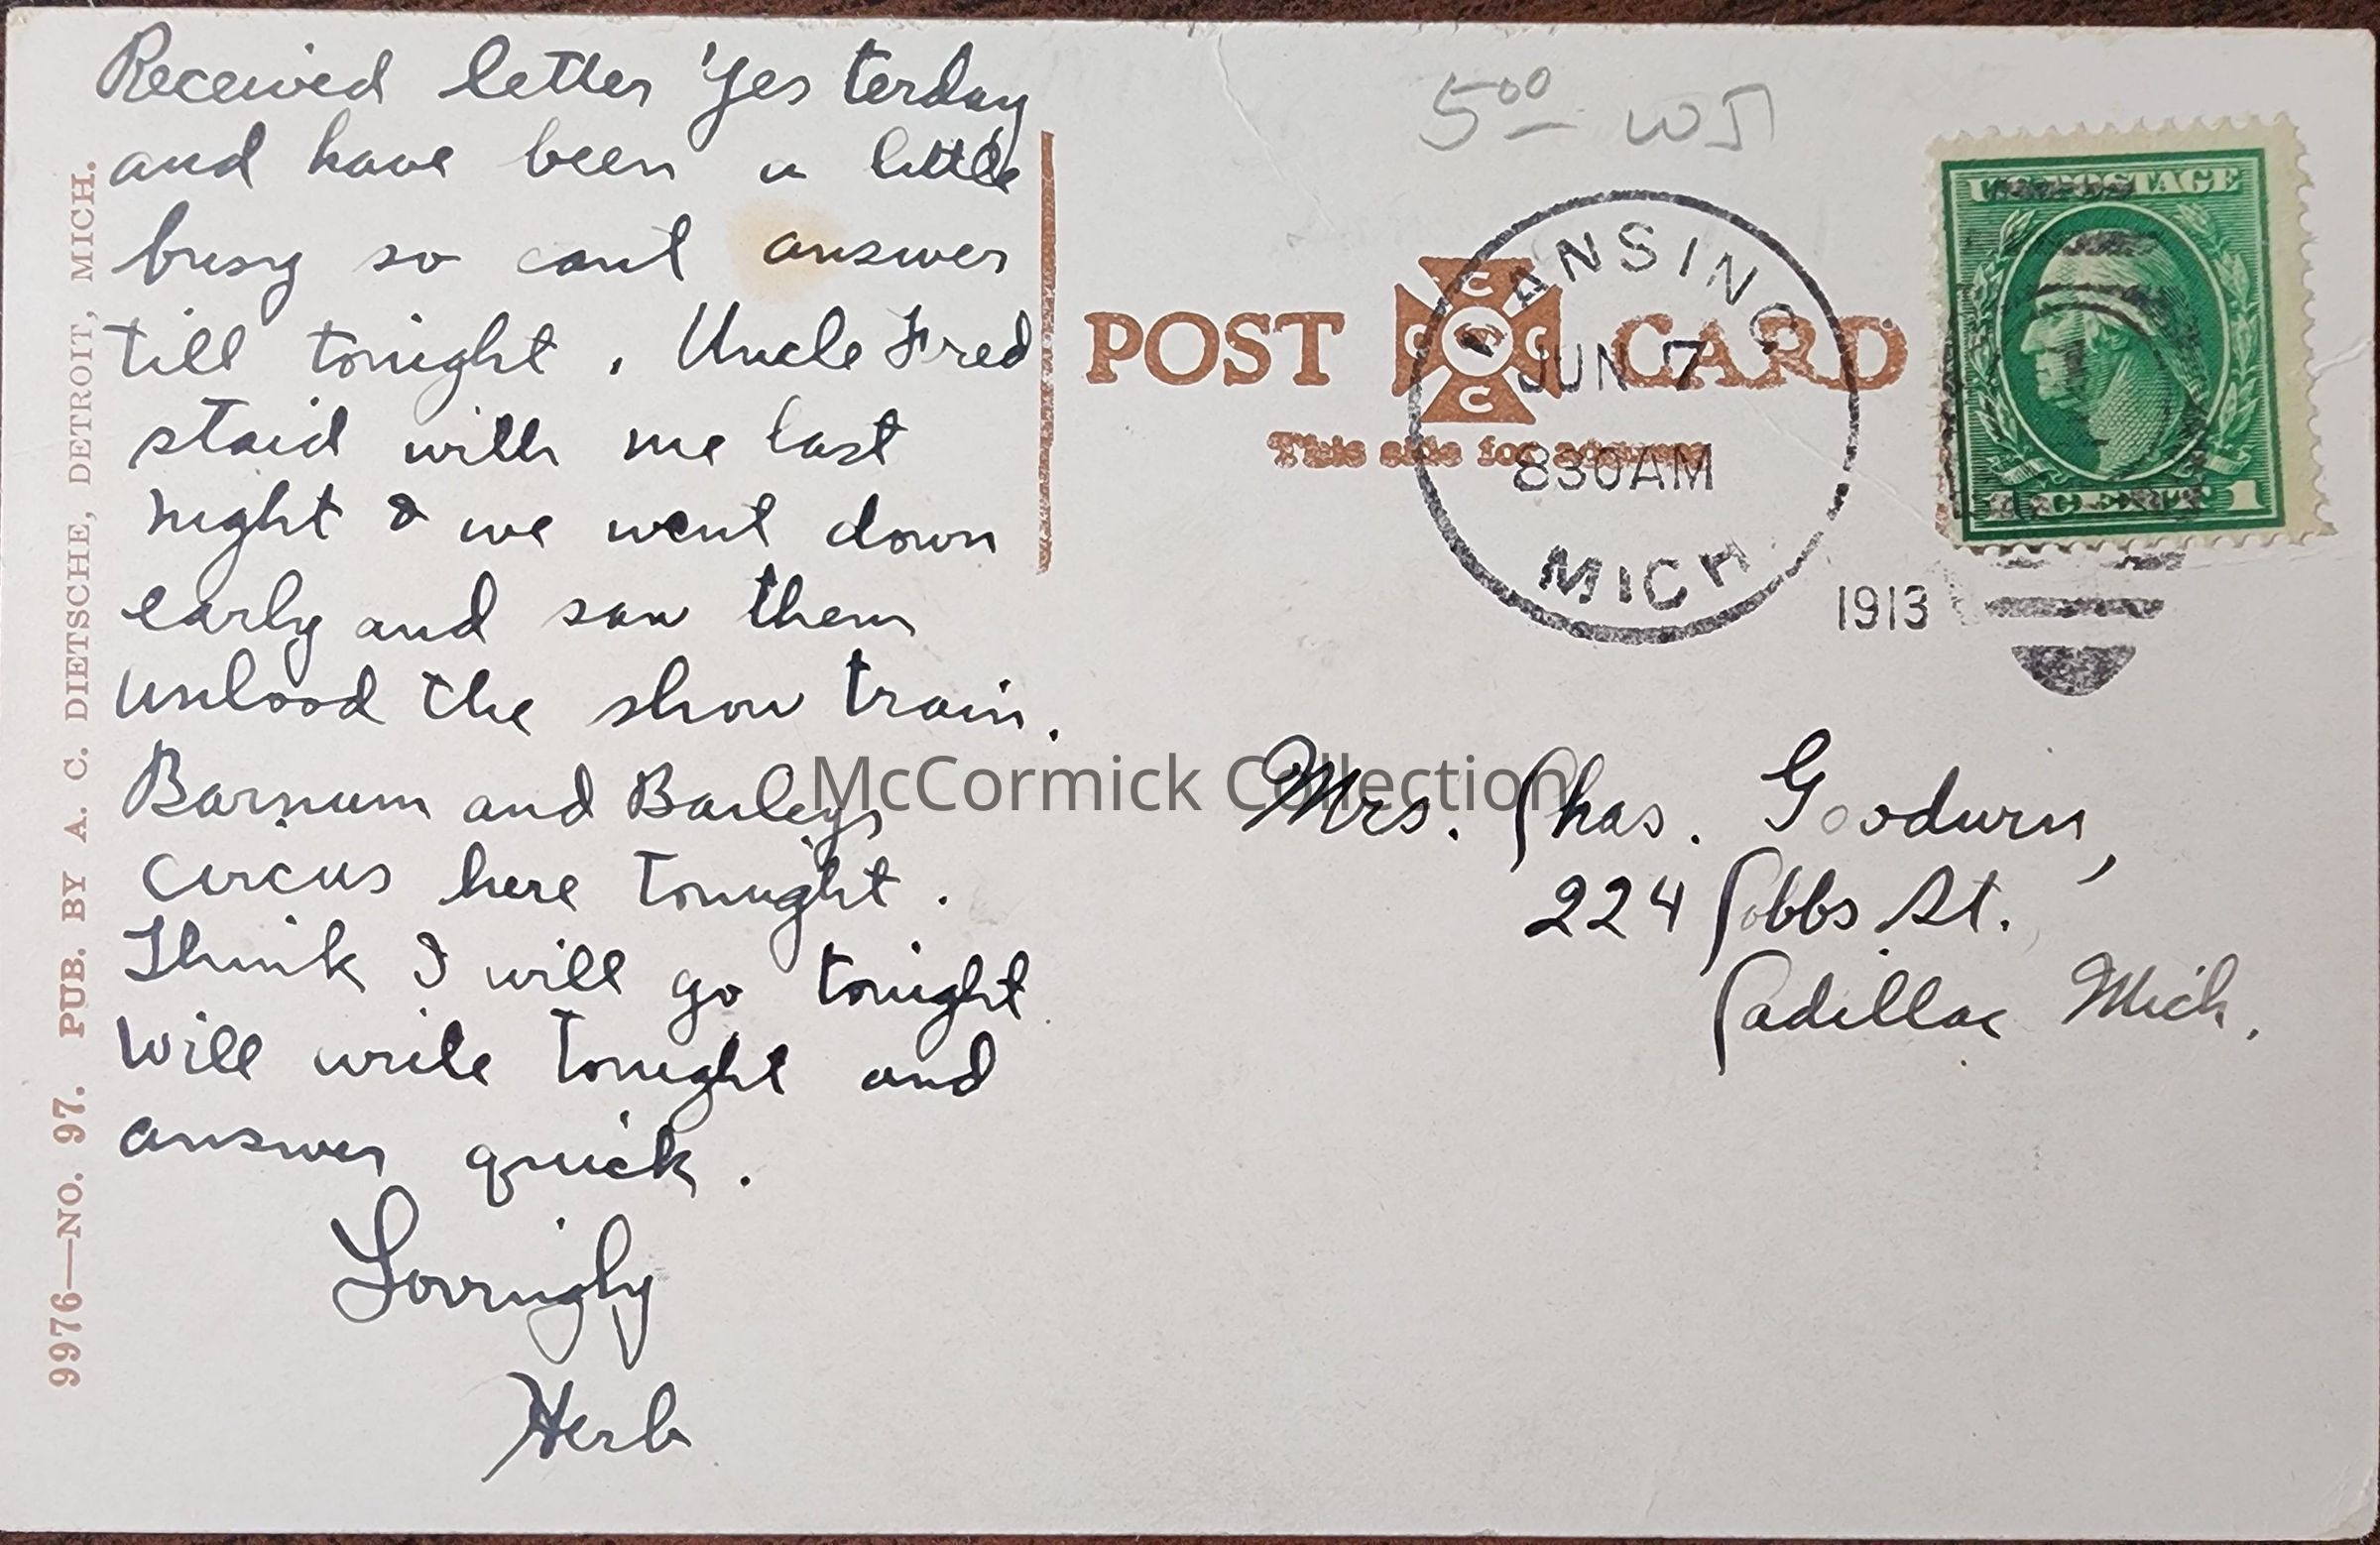 Received letter Yesterday
and have been a little
busy so cant answer
till tonight. Uncle Fred
staid with me last
night & we went down
early and saw them
unload the show train.
Barnum and Baileys
circus here tonight.
Think I will go tonight
Will write tonight and
answer quick.
Lovingly
Herb
9976—NO. 97. PUB. BY A. C. DIETSCHE, DETROIT, MICH.
500 WJ
POST CARD
C C C C
This side for address
LANSING
JUN 7
830AM
MICH
1913
U.S. POSTAGE
1 CENT 1
Mrs. Chas. Goodwin,
224 Cobbs St.
Cadillac Mich.
McCormick Collection